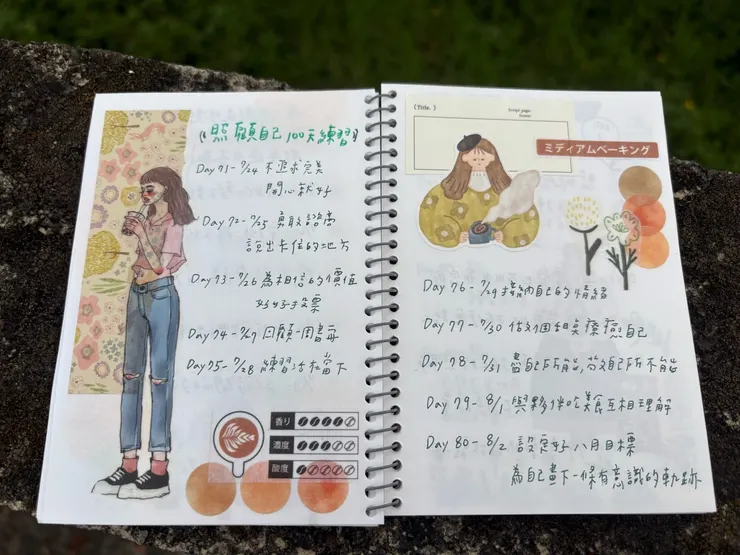 《照顧自己100天練習》
Day 71-7/24 不追求完美
開心就好
Day 72-7/25 勇敢諮商
說出卡住的地方
Day 73-7/26 為相信的價值
好好投票
Day 74-7/27 回顧一周書寫
Day 75-7/28 練習活在當下
香り
濃度
酸度
(Title. )
Script page.
ミディアムベーキング
Day 76-7/29 接納自己的情緒
Day 77-7/30 做個組員療癒自己
Day 78-7/31 盡自己所能,等自己所不能
Day 79-8/1 與夥伴吃美食互相理解
Day 80-8/2 設定好八月目標
為自己畫下一條有意識的軌跡